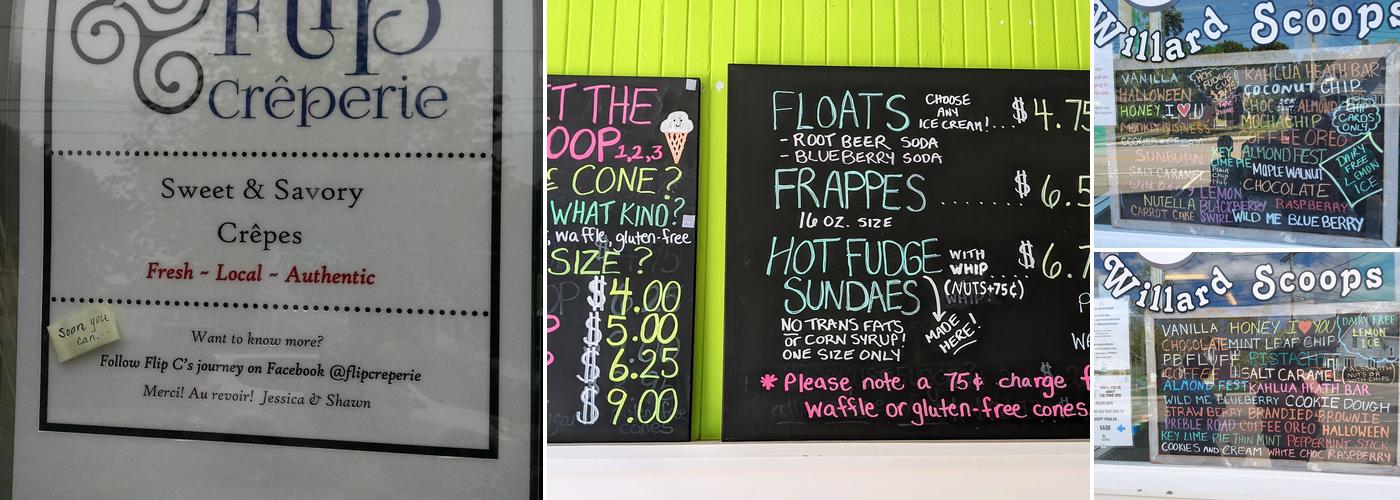 Flip
Crêperie
Sweet & Savory
Crêpes
Fresh ~ Local ~ Authentic
Soon you
can...
Want to know more?
Follow Flip C's journey on Facebook @flipcreperie
Merci! Au revoir! Jessica & Shawn
T THE
OOP 1,2,3
E CONE?
WHAT KIND?
, waffle, gluten-free
SIZE?
$4.00
P $5.00
$6.25
$9.00
FLOATS CHOOSE ANY ICE CREAM!... $4.75
- ROOT BEER SODA
- BLUEBERRY SODA
FRAPPES ........ $6.5
16 OZ. SIZE
HOT FUDGE WITH WHIP .... $6.7
SUNDAES (NUTS+75¢)
MADE HERE!
NO TRANS FATS
OR CORN SYRUP!
ONE SIZE ONLY
* Please note a 75¢ charge f
waffle or gluten-free cones.
Willard Scoops
VANILLA HOT FUDGE KAHLUA HEATH BAR
HALLOWEEN COCONUT CHIP
HONEY, I ♥ U CHOC ALMOND
MONKEY BUSINESS MOCHA CHIP CARDS ONLY
COFFEE OREO
SUNBURN KEY LIME PIE ALMOND FEST
SALT CARAMEL MAPLE WALNUT DAIRY FREE LEMON ICE
CHOCOLATE
NUTELLA LEMON BLACKBERRY SWIRL RASPBERRY
CARROT CAKE WILD ME BLUEBERRY
Willard Scoops
VANILLA HONEY I ♥ YOU DAIRY FREE
CHOCOLATE MINT LEAF CHIP LEMON ICE
PB FLUFF PISTACH
COFFEE SALT CARAMEL
ALMOND FEST KAHLUA HEATH BAR
WILD ME BLUEBERRY COOKIE DOUGH
STRAWBERRY BRANDIED BROWNIE
PREBLE ROAD COFFEE OREO HALLOWEEN
KEY LIME PIE THIN MINT PEPPERMINT STICK
COOKIES AND CREAM WHITE CHOC RASPBERRY